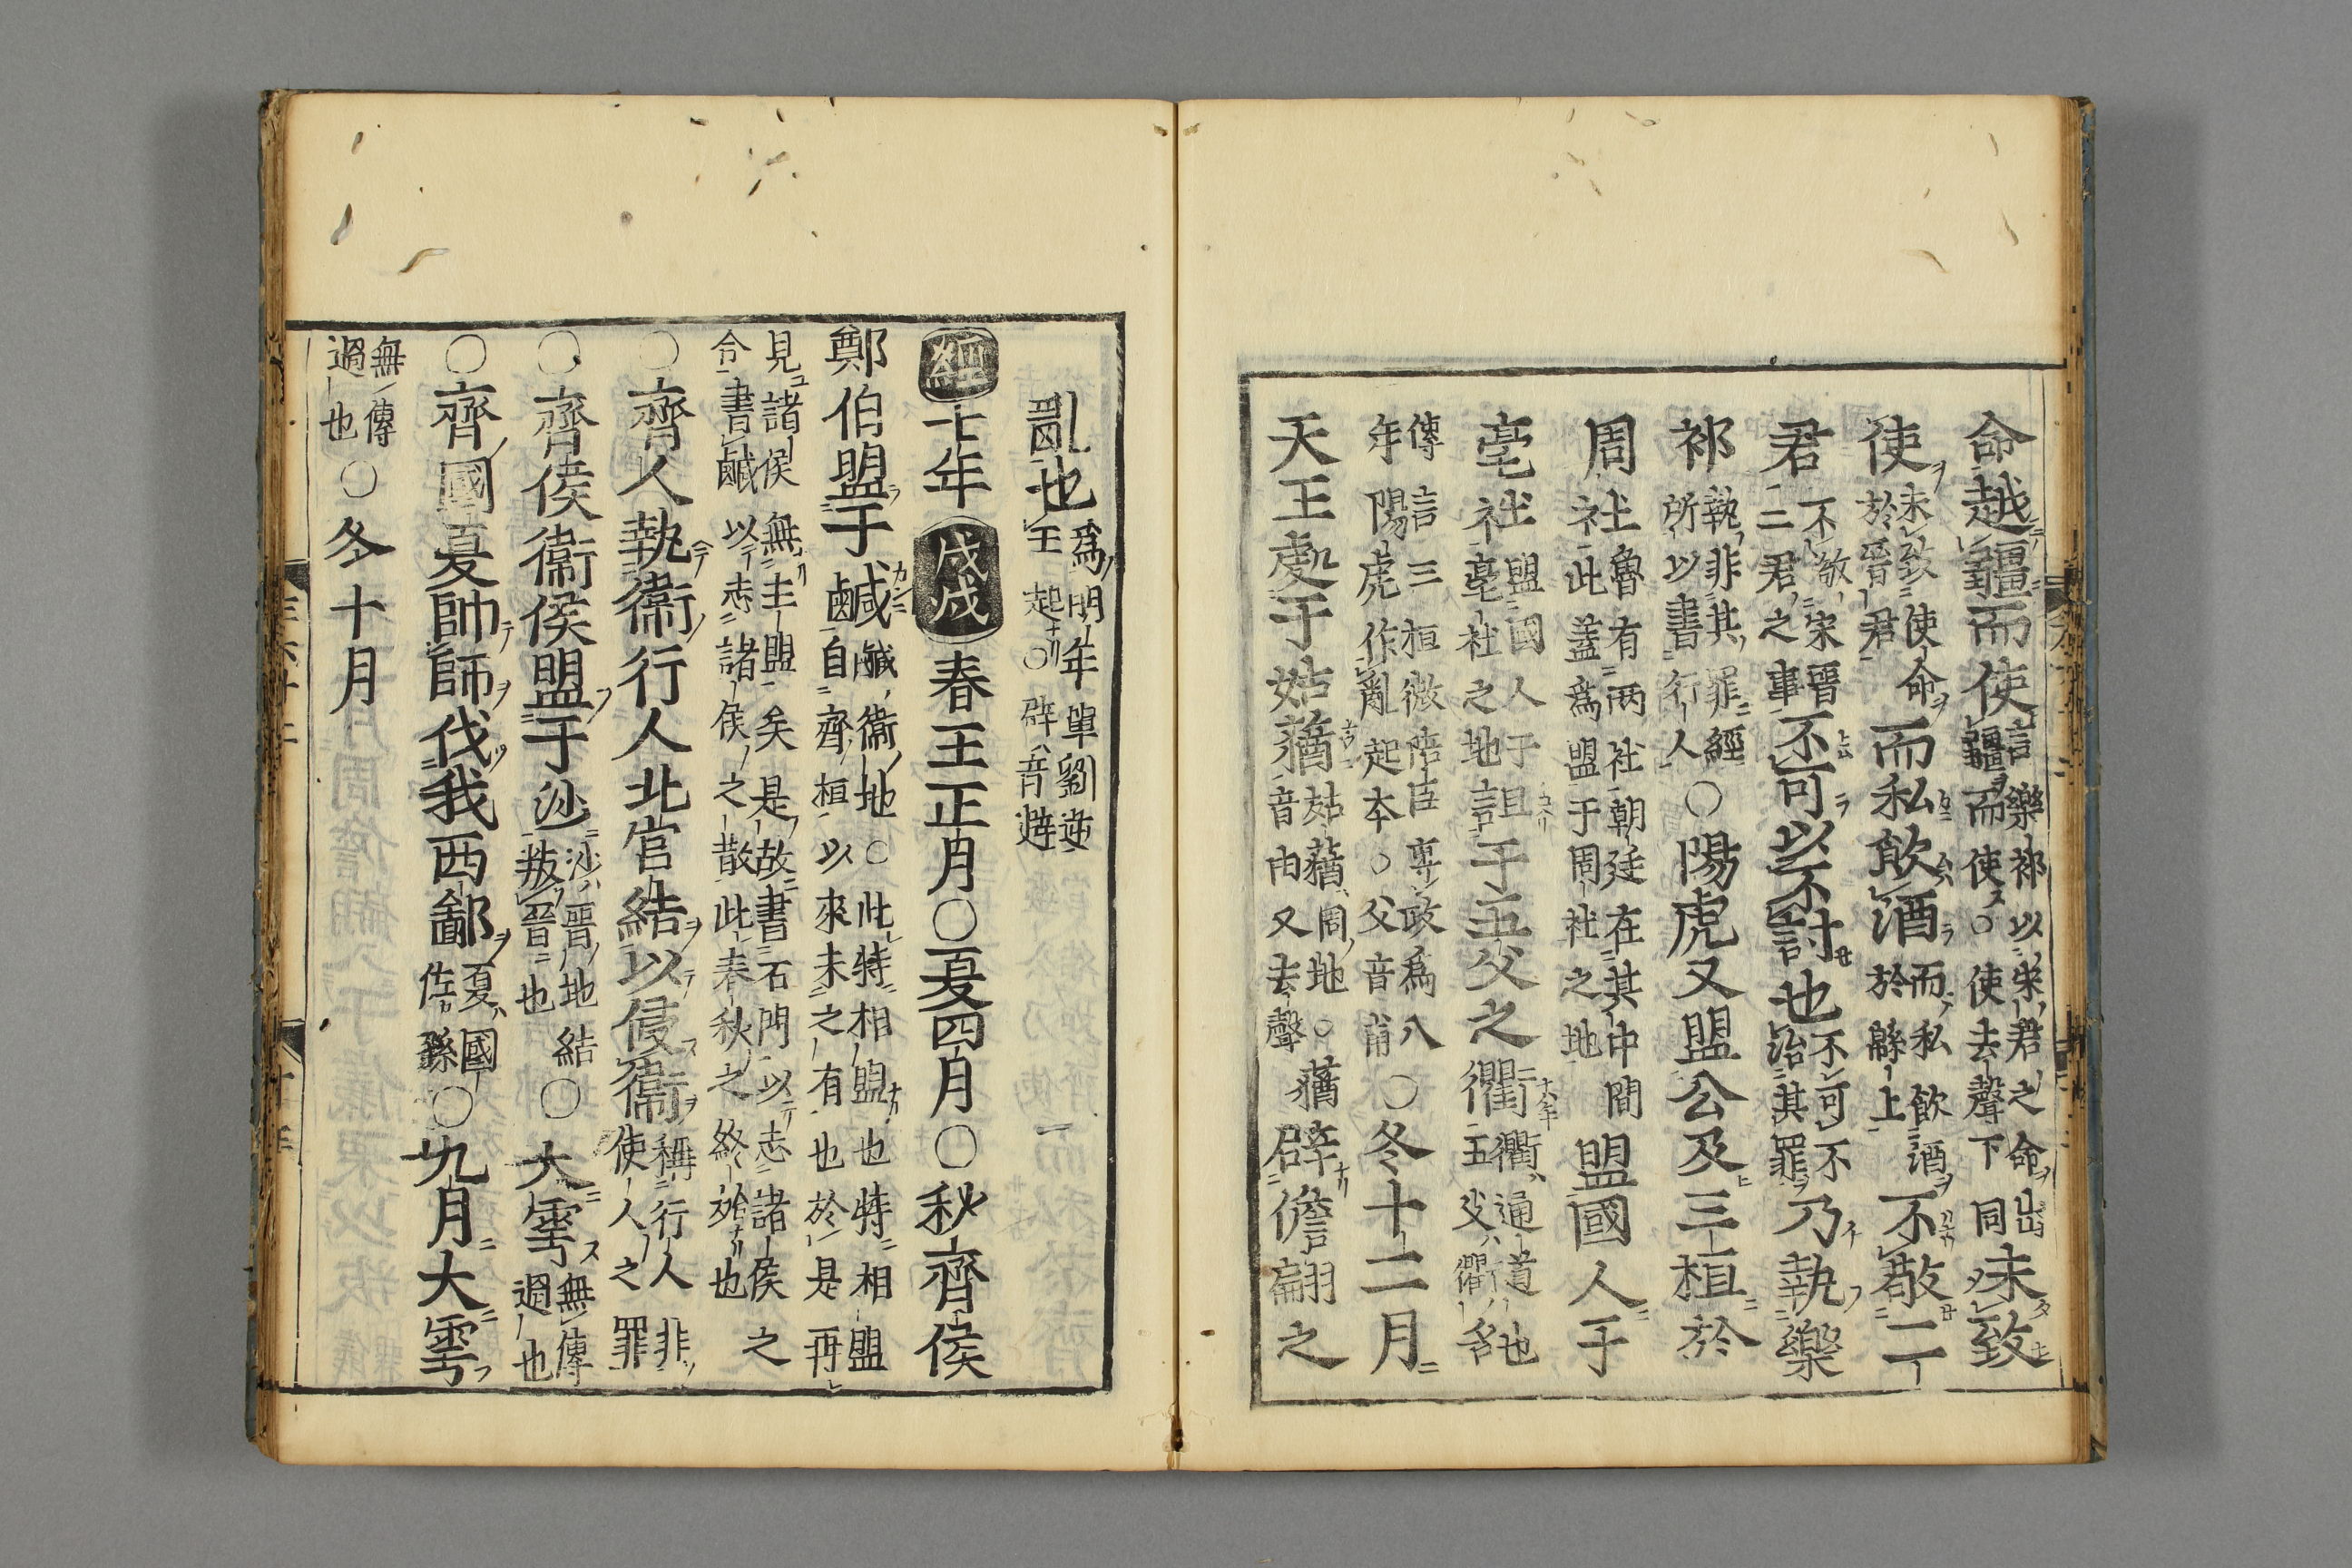 命越疆而使言樂祁以宋君之命出疆而使○使去聲下同未致
使未致使命於晉君而私飲酒而私飲酒於縣上不敬二
君不敬宋晉二君之事不可以不討也不可不治其罪乃執樂
祁執非其罪經所以書行人○陽虎又盟公及三桓於
周社魯有两社朝廷在其中間此蓋爲盟于周社之地盟國人于
亳社盟國人于亳社之地詛于五父之衢衢通道也五父衢名
傳言三桓微陪臣專政爲八年陽虎作亂起本○父音甫○冬十二月
天王處于姑蕕姑蕕周地○蕕音由又去聲辟儋翩之
亂也爲明年單劉逆王起○辟音避
經七年戊戌春王正月○夏四月○秋齊侯
鄭伯盟于鹹鹹衞地○此特相盟也特相盟自齊桓以來未之有也於是再
見諸侯無主盟矣是故書石門以志諸侯之
合書鹹以志諸侯之散此春秋之終始也
○齊人執衞行人北宮結以侵衞稱行人非使人之罪
○齊侯衞侯盟于沙沙晉地結叛晉也○大雩無傳過也
○齊國夏帥師伐我西鄙夏國佐孫○九月大雩
無傳過也○冬十月